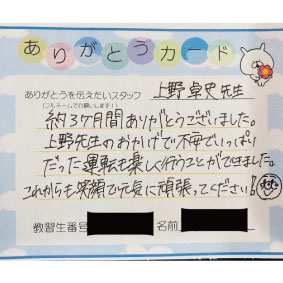 ありがとうカード
ありがとうを伝えたいスタッフ
(フルネームでお願いします！)
上野 卓史 先生
約3ケ月間ありがとうございました。
上野先生のおかげで不安でいっぱい
だった運転も楽しく行うことができました。
これからも笑顔で元気に頑張ってください!
教習生番号 名前